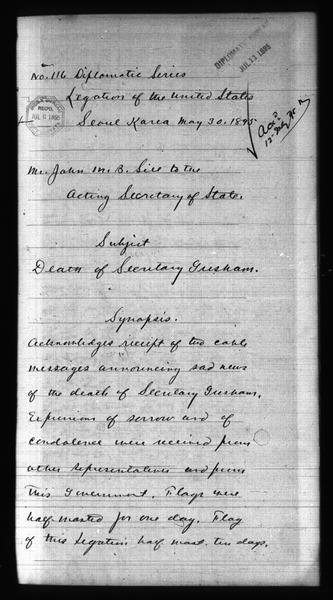 No. 116 Diplomatic Series
Legation of the United States
Seoul Korea May 30, 1895
DIPLOMATIC
JUL 13 1895
JUL 11 1895
Mr. John M. B. Sill to the
Acting Secretary of State.
Subject
Death of Secretary Gresham.
Synopsis.
Acknowledges receipt of two cable
messages announcing sad news
of the death of Secretary Gresham.
Expressions of sorrow and of
condolence were received from
other representatives and from
this Government. Flags were
half-masted for one day. Flag
of this Legation half mast ten days.